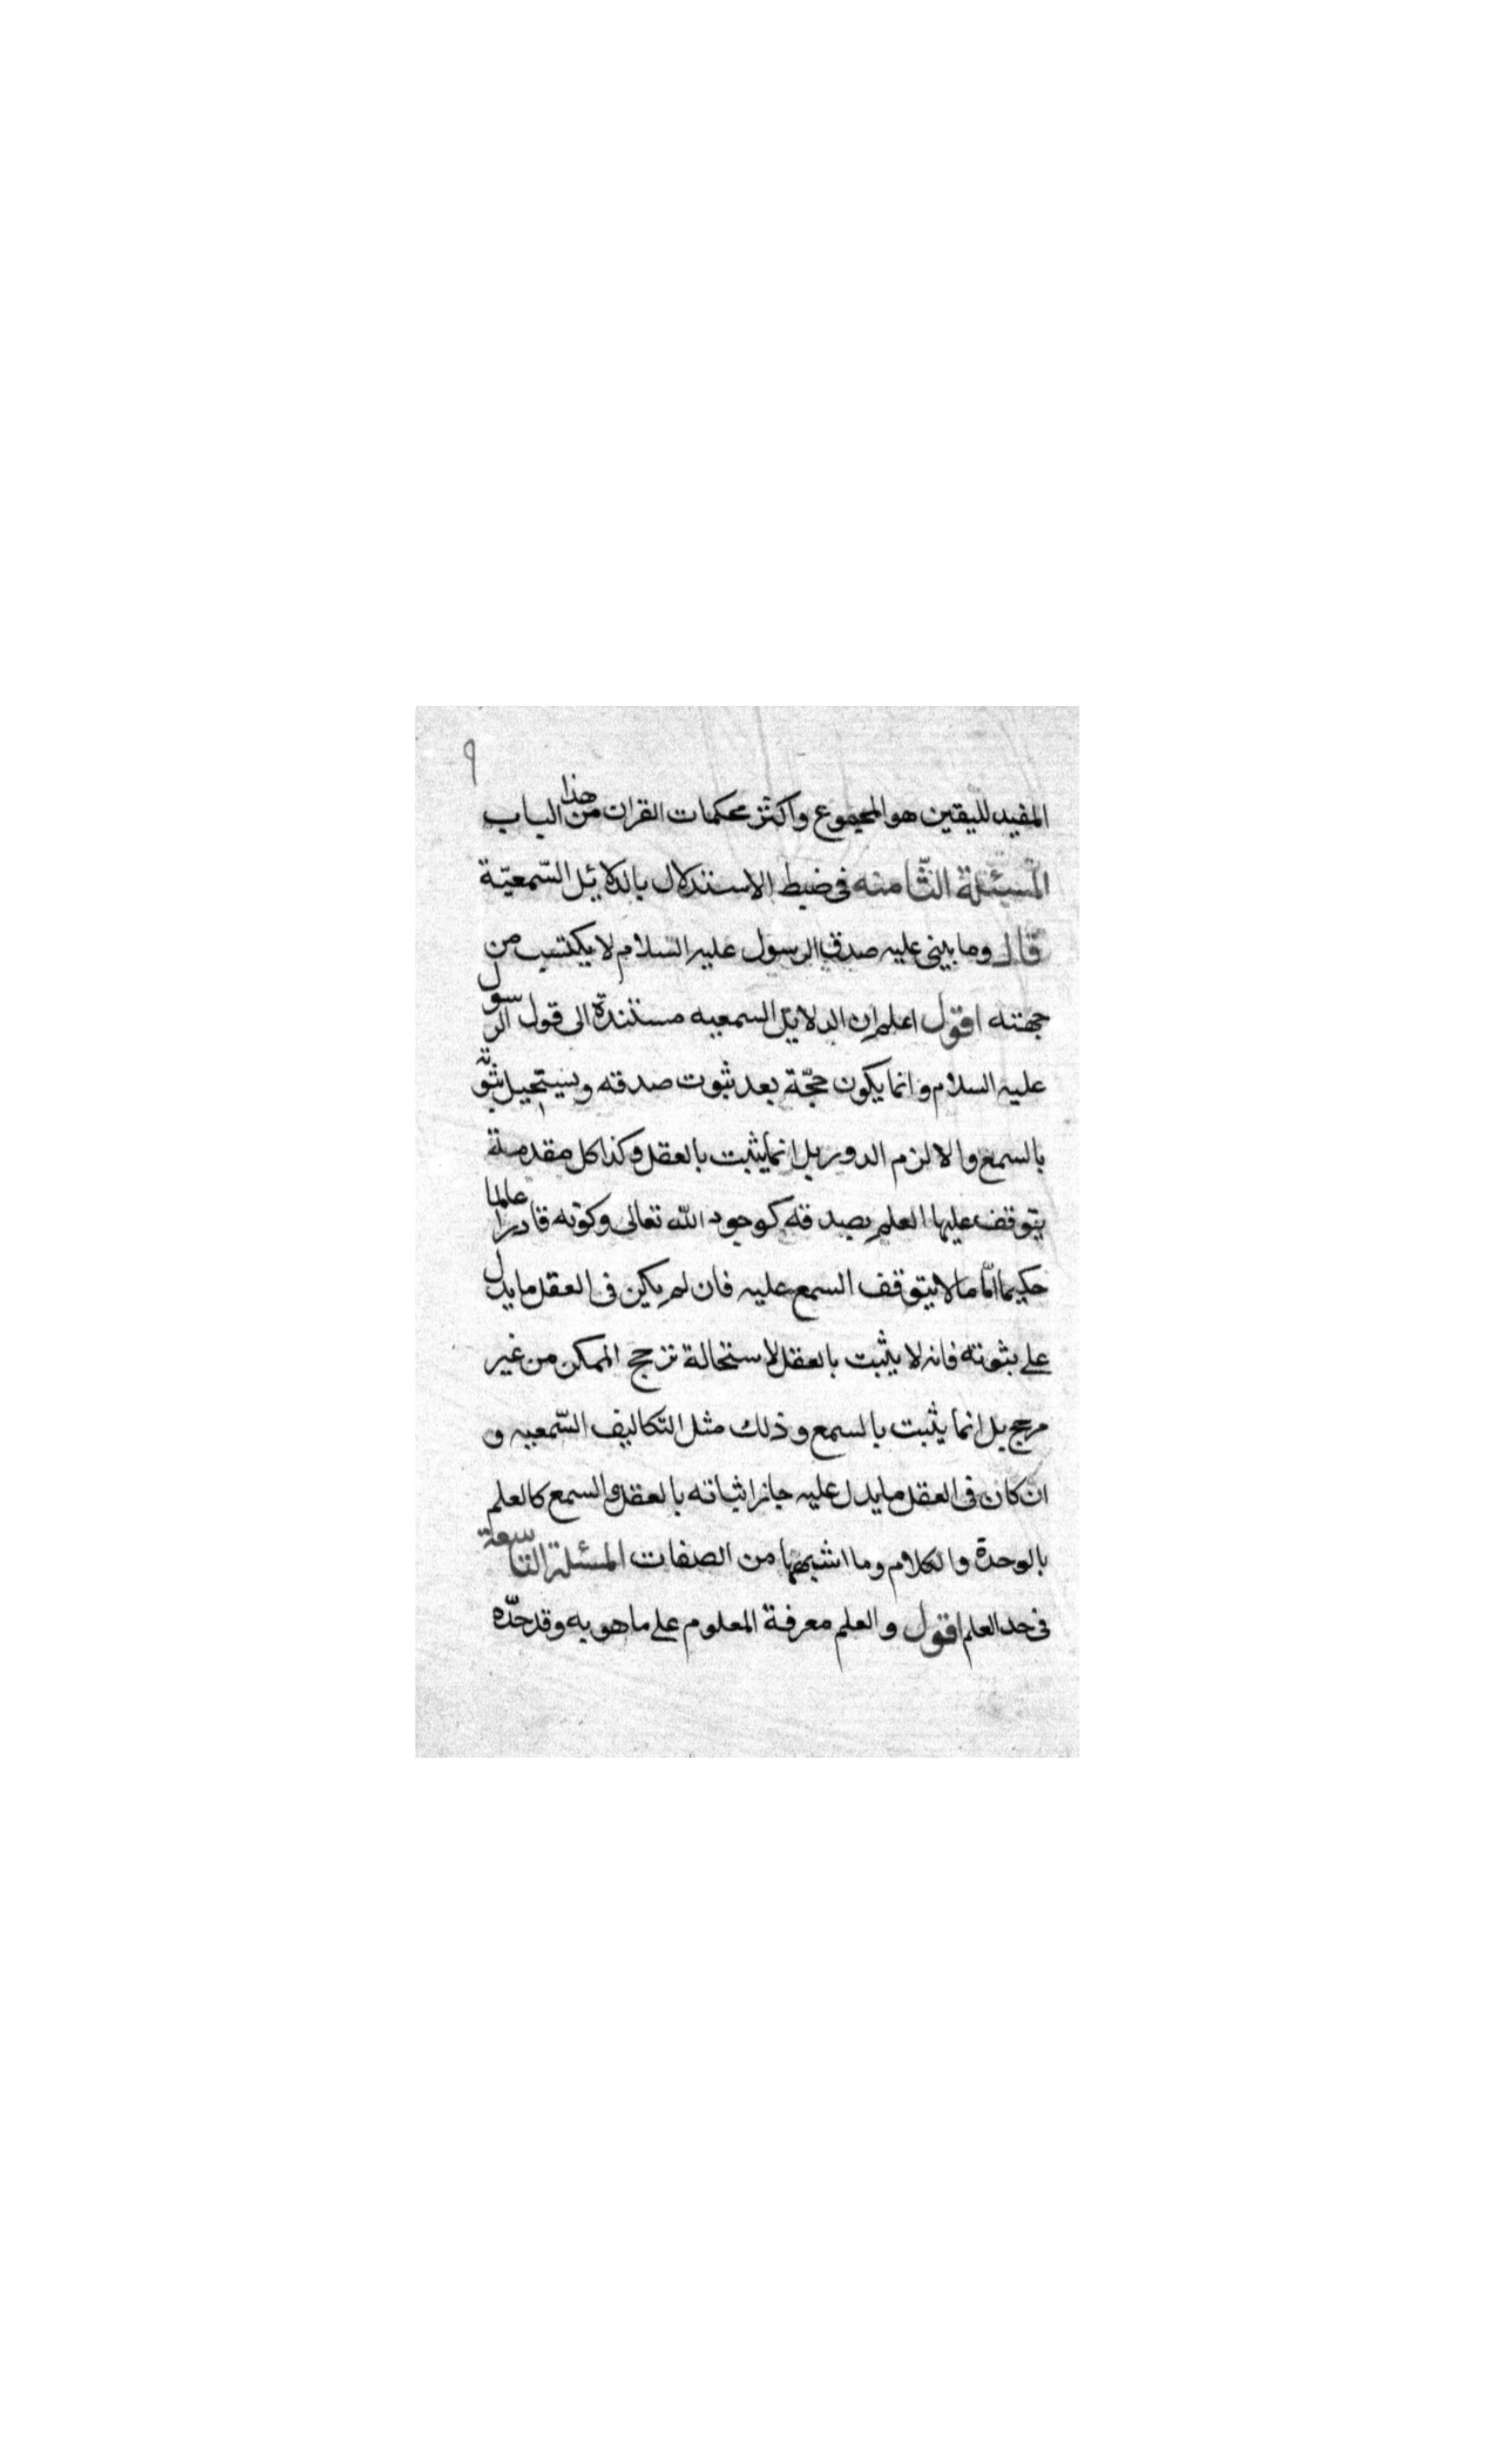 ٩
المفيد لليقين هو المجموع واكثر محكمات القران من هذا الباب
المسئلة الثّامنه فى ضبط الاستدلال بالدلائل السّمعيّة
قال وما يبنى عليه صدق الرسول عليه السلام لا يكتسب من
جهته اقول اعلم ان الدلايل السمعيه مستندة الى قول الرسول
عليه السلام و انما يكون حجّة بعد ثبوت صدقه ويستحيل ثبوته
بالسمع والا لزم الدور بل انما يثبت بالعقل وكذا كل مقدمة
يتوقف عليها العلم بصدقه كوجود الله تعالى وكونه قادرا عالما
حكيما امّا ما لا يتوقف السمع عليه فان لم يكن فى العقل ما يدل
على ثبوته فانه لا يثبت بالعقل لاستحالة ترجح الممكن من غير
مرجح بل انما يثبت بالسمع و ذلك مثل التكاليف السّمعيه و
ان كان فى العقل ما يدل عليه جاز اثباته بالعقل و السمع كالعلم
بالوحدة والكلام وما اشبهها من الصفات المسئلة التاسعة
فى حد العلم اقول و العلم معرفة المعلوم على ما هو به وقد حدّه